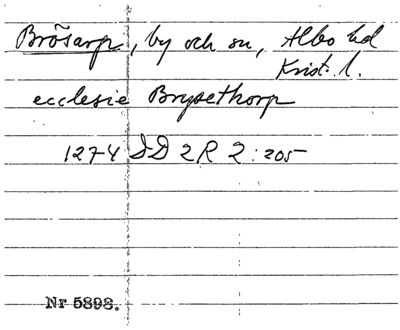 Brösarp, by och sn, Albo hd
Krist. l.
ecclesie Brysethorp
1274 DD 2R 2:205
Nr 5898.